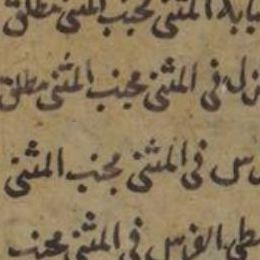 سبابة المثنى مجنب المثنى مطلق
زل في المثنى مجنب المثنى مطلق
رس في المثنى مجنب المثنى
وسطى الفرس في المثنى مجنب